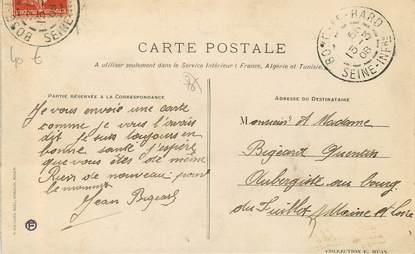 BOSC-LE-HARD
SEINE-INFRE
CARTE POSTALE
A utiliser seulement dans le Service Intérieur (France, Algérie et Tunisie)
PARTIE RÉSERVÉE A LA CORRESPONDANCE
ADRESSE DU DESTINATAIRE
Je vous envoie une carte
comme je vous l'avais
dit je suis toujours en
bonne santé j'espère
que vous êtes de même
Rien de nouveau pour
le moment
Jean Bigeard
Monsieur et Madame
Bigeard Quentin
Aubergiste au bourg
du Fuilet Maine et Loire